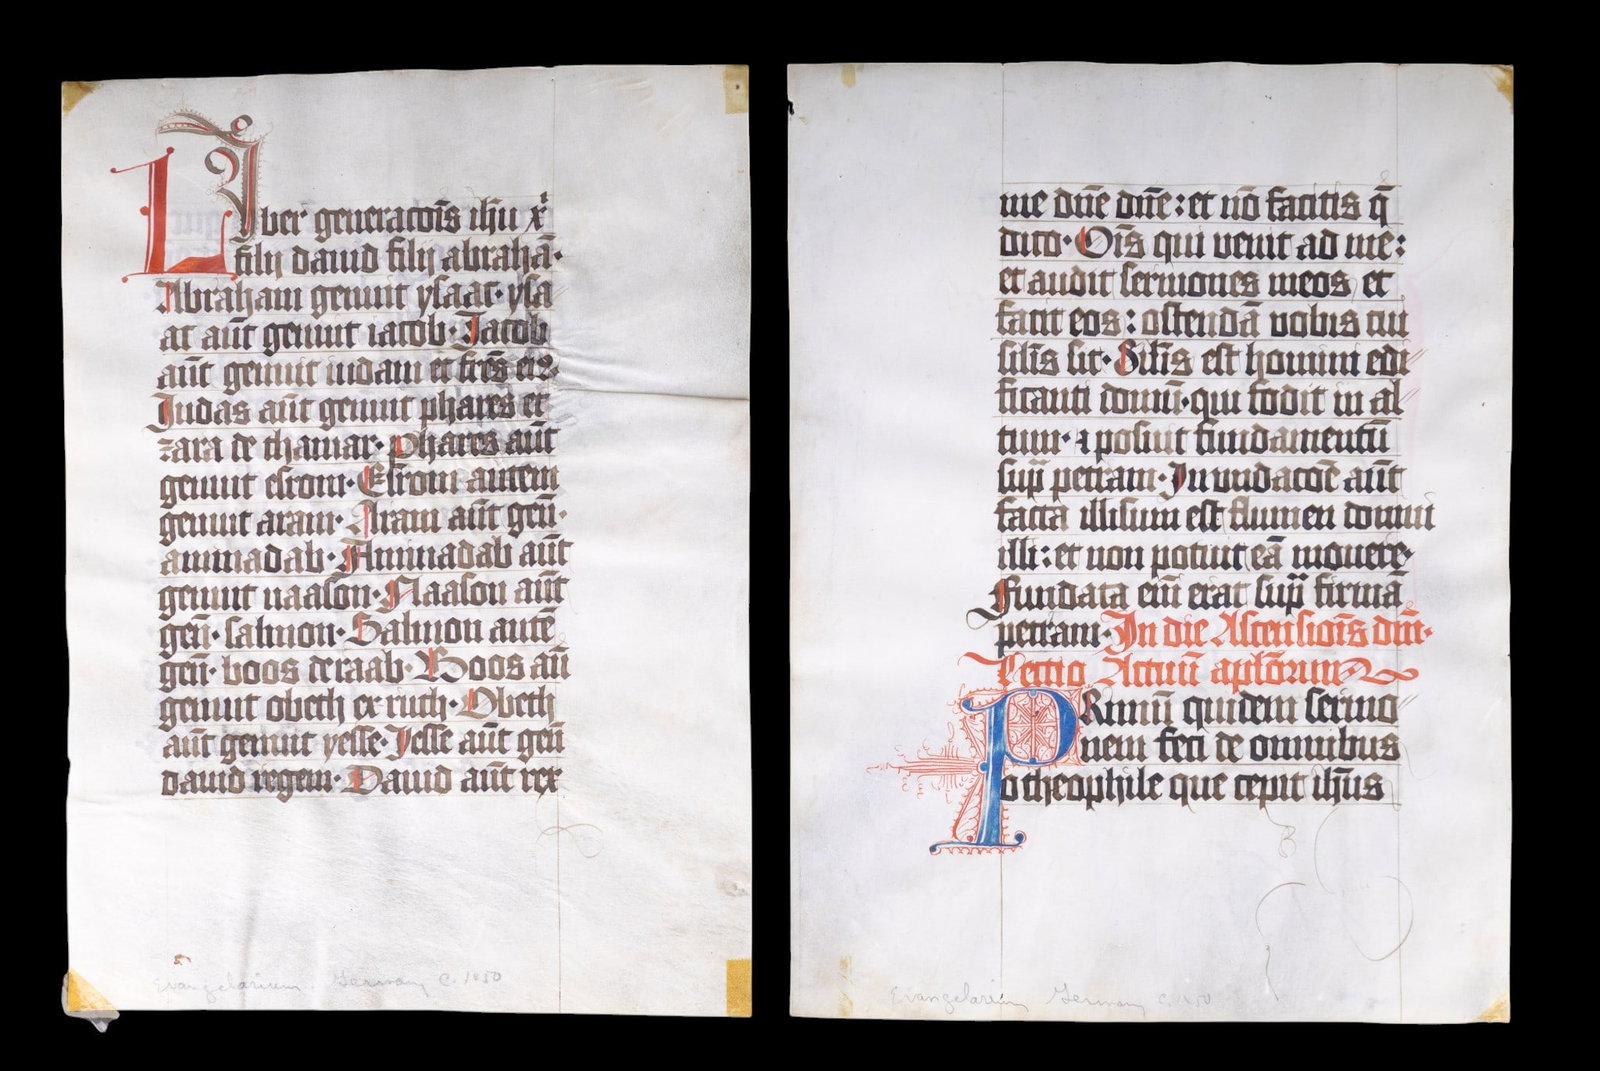 Liber generacōis ihū xͥ
filij dauid filij abrahā·
Abraham genuit ysaac· ysa
ac aūt genuit iacob· Jacob
aūt genuit iudam et fr̄es eiꝰ·
Judas aūt genuit phares et
zara de thamar· Phares aūt
genuit esrom· Esrom autem
genuit aram· Aram aūt geñ·
aminadab· Aminadab aūt
genuit naason· Naason aūt
geñ· salmon· Salmon autē
geñ· boos de raab· Boos aū
genuit obeth ex ruth· Obeth
aūt genuit yesse· Yesse aūt geñ
dauid regem· Dauid aūt rex
Evangelarium. Germany C. 1450
me dn̄e dn̄e: et nō facitis q̄
dico· Om̄s qui venit ad me:
et audit sermones meos et
facit eos: ostendā vobis cui
sil̄is sit· Sil̄is est homini edi
ficanti domū· qui fodit in al
tum· ⁊ posuit fundamentū
sup̄ petram· Jnundacōe aūt
facta illisum est flumen domui
illi: et non potuit eā mouere·
Fundata em̄ erat sup̄ firmā
petram· Jn die Ascensiōis dn̄i·
Lectio Actuū apl̄orum
PRimū quidem sermo
nem feci de omnibus
o theophile que cepit ih̄us
Evangelarium Germany C. 1450